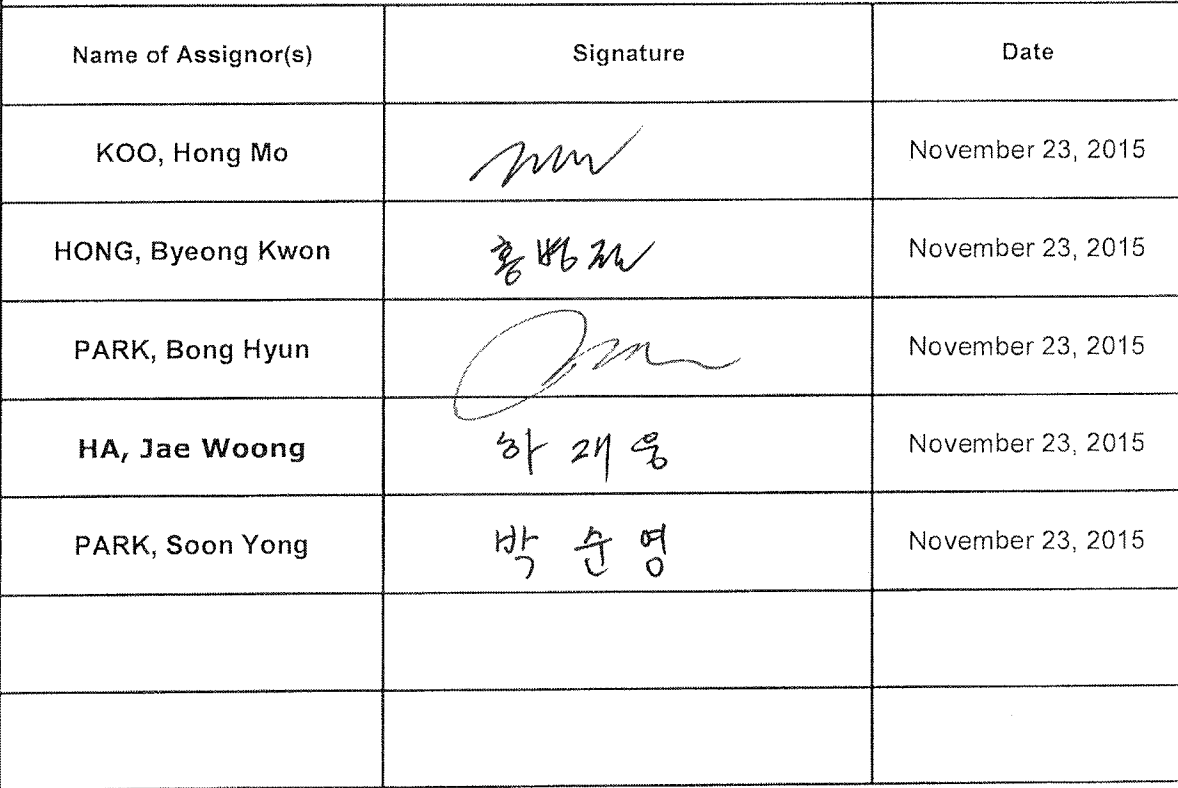 Name of Assignor(s) Signature Date
KOO, Hong Mo November 23, 2015
HONG, Byeong Kwon 홍병권 November 23, 2015
PARK, Bong Hyun November 23, 2015
HA, Jae Woong 하재웅 November 23, 2015
PARK, Soon Yong 박순영 November 23, 2015